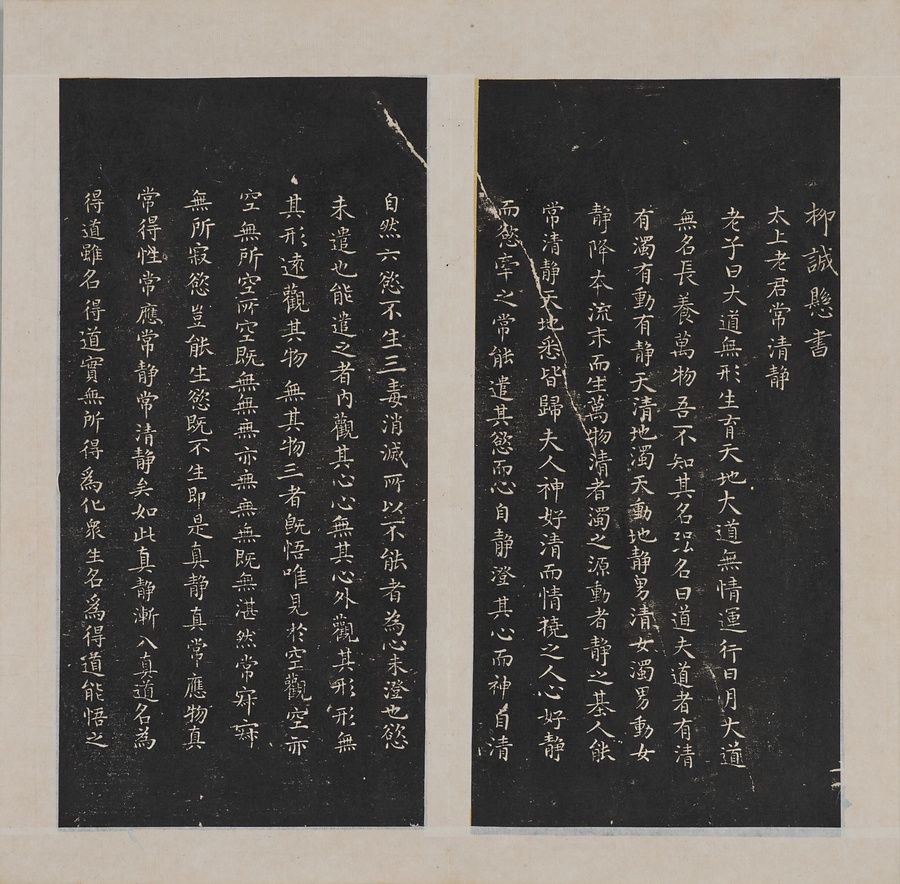 柳誠懸書
太上老君常清静
老子曰大道無形生育天地大道無情運行日月大道
無名長養萬物吾不知其名强名曰道夫道者有清
有濁有動有静天清地濁天動地静男清女濁男動女
静降本流末而生萬物清者濁之源動者静之基人能
常清静天地悉皆歸夫人神好清而情撓之人心好静
而慾牽之常能遣其慾而心自静澄其心而神自清
自然六慾不生三毒消滅所以不能者為心未澄也慾
未遣也能遣之者内觀其心心無其心外觀其形形無
其形遠觀其物無其物三者既悟唯見於空觀空亦
空無所空所空既無無無亦無無無既無湛然常寂寂
無所寂慾豈能生慾既不生即是真静真常應物真
常得性常應常静常清静矣如此真静漸入真道名為
得道雖名得道實無所得為化衆生名為得道能悟之